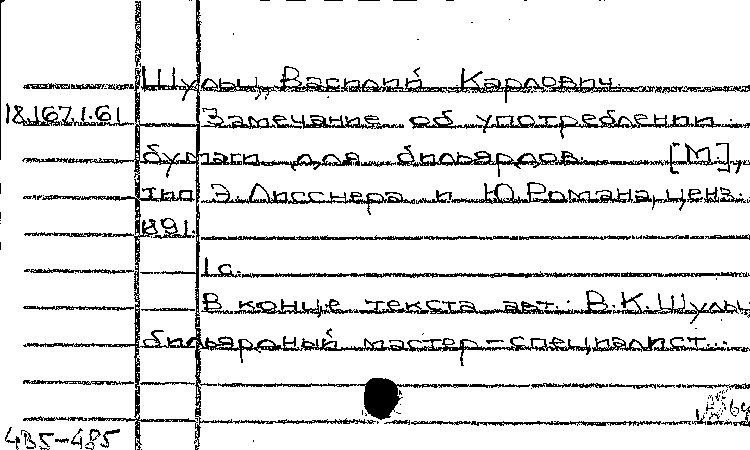 Шульц, Василий Карлович.
18.167.1.61 Замечание об употреблении
бумаги для бильярдов. [М.],
тип. Э. Лисснера и Ю. Романа, ценз.
1891.
1 с.
В конце текста авт.: В.К. Шульц,
бильярдный мастер-специалист...
435-485